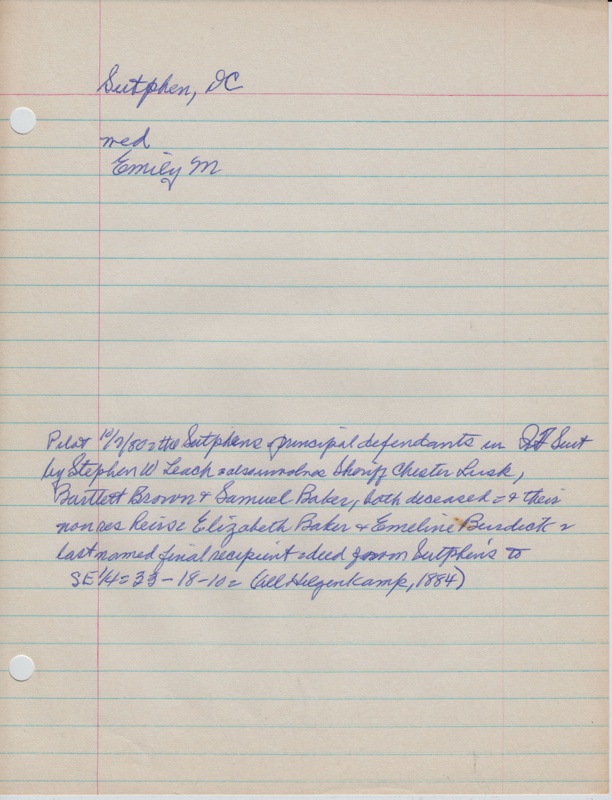 Sutphen, DC
med
Emily M
Pilot 10/7/80 = the Sutphens principal defendants in Suit
by Stephen W Leach = Sheriff Chester Lusk,
Bartlett Brown & Samuel Baker, both deceased = & their
nonres heirs = Elizabeth Baker & Emeline Burdock =
last named final recipient = deed from Sutphen's to
SE 1/4 = 33-18-10 = (Hilgenkamp, 1884)